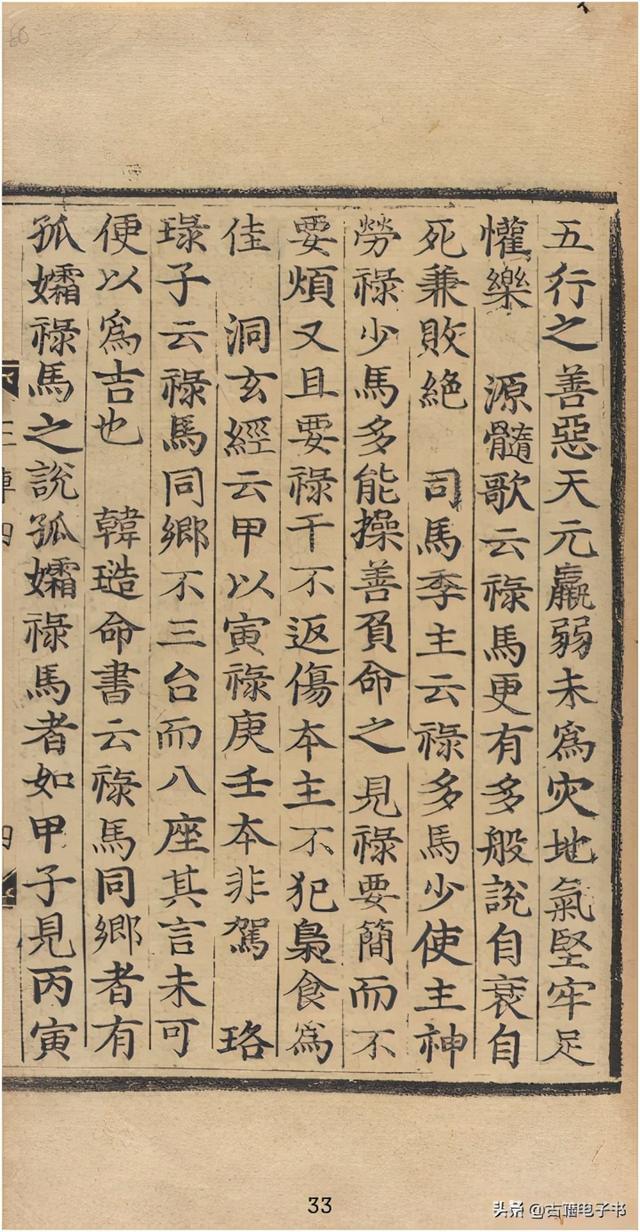 五行之善惡天元羸弱未爲灾地氣堅牢足
懽樂 源髓歌云祿馬更有多般說自衰自
死兼敗絶 司馬季主云祿多馬少使主神
勞祿少馬多能操善負命之見祿要簡而不
要煩又且要祿干不返傷本主不犯梟食爲
佳 洞玄經云甲以寅祿庚壬本非駕 珞
琭子云祿馬同鄉不三台而八座其言未可
便以爲吉也 韓𤨏命書云祿馬同鄉者有
孤孀祿馬之說孤孀祿馬者如甲子見丙寅
33
头条 @古籍电子书